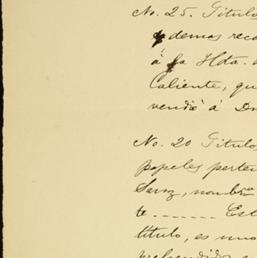 No. 25. Titulo
y demas reco
á la Hda.
Caliente, qu
vendió á Dn
No. 20 Titulo
papeles perte
Sanz, nombra
te ....... Est
titulo, es uno